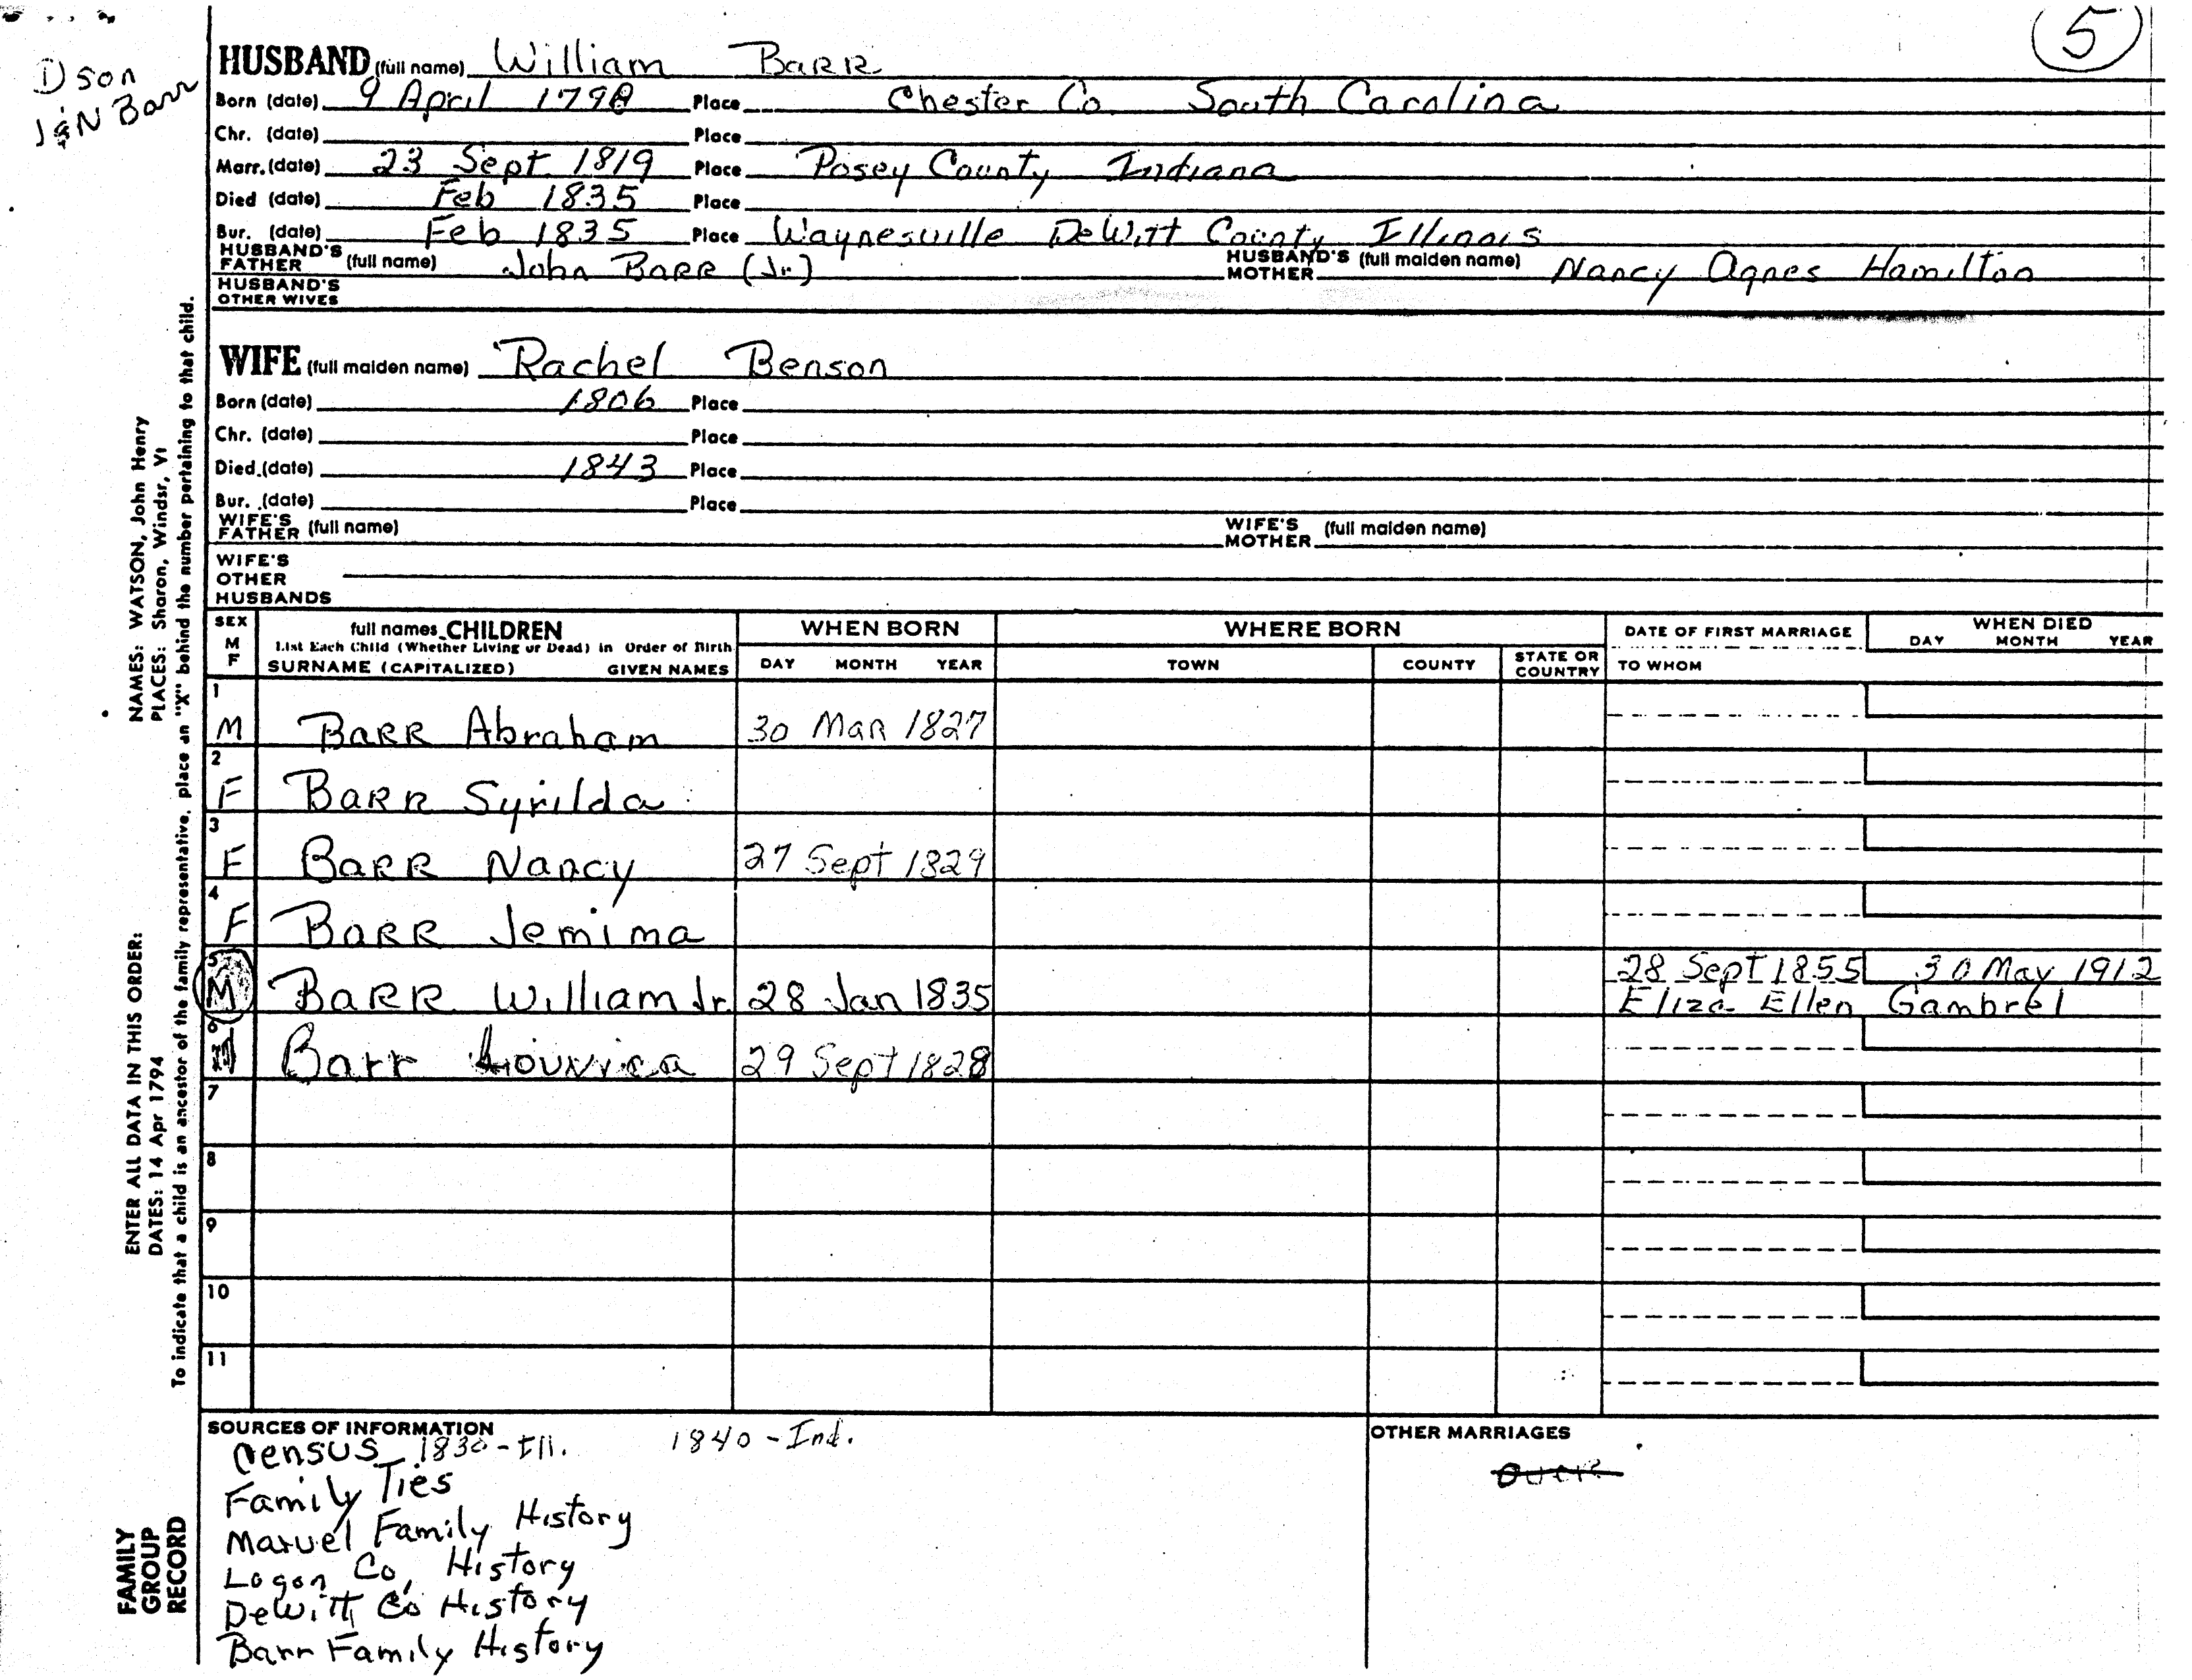 5
1) son
J & N Barr
HUSBAND (full name) William Barr
Born (date) 9 April 1798 Place Chester Co. South Carolina
Chr. (date) Place
Marr. (date) 23 Sept. 1819 Place Posey County Indiana
Died (date) Feb 1835 Place
Bur. (date) Feb 1835 Place Waynesville DeWitt County Illinois
HUSBAND'S FATHER (full name) John Barr (Jr.) HUSBAND'S MOTHER (full maiden name) Nancy Agnes Hamilton
HUSBAND'S OTHER WIVES
WIFE (full maiden name) Rachel Benson
Born (date) 1806 Place
Chr. (date) Place
Died. (date) 1843 Place
Bur. (date) Place
WIFE'S FATHER (full name) WIFE'S MOTHER (full maiden name)
WIFE'S OTHER HUSBANDS
SEX M F
full names CHILDREN
List Each Child (Whether Living or Dead) in Order of Birth
SURNAME (CAPITALIZED) GIVEN NAMES
WHEN BORN
DAY MONTH YEAR
WHERE BORN
TOWN COUNTY STATE OR COUNTRY
DATE OF FIRST MARRIAGE
TO WHOM
WHEN DIED
DAY MONTH YEAR
1 M Barr Abraham 30 Mar 1827
2 F Barr Syrilda
3 F Barr Nancy 27 Sept 1829
4 F Barr Jemima
5 M Barr William Jr. 28 Jan 1835 28 Sept 1855 30 May 1912
Eliza Ellen Gambrel
6 Barr 29 Sept 1828
7
8
9
10
11
SOURCES OF INFORMATION
Census 1830-Ill. 1840-Ind.
Family Ties
Marvel Family History
Logan Co, History
DeWitt Co History
Barr Family History
OTHER MARRIAGES
NAMES: WATSON, John Henry
PLACES: Sharon, Windsr, Vt
ENTER ALL DATA IN THIS ORDER:
DATES: 14 Apr 1794
To indicate that a child is an ancestor of the family representative, place an "X" behind the number pertaining to that child.
FAMILY
GROUP
RECORD